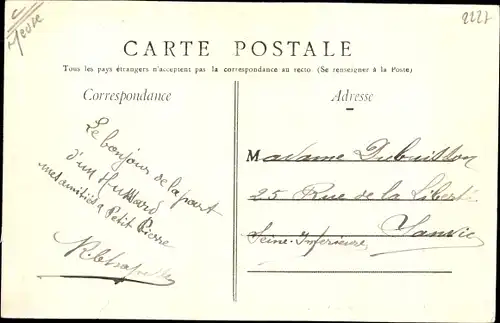 Meuse
2227
CARTE POSTALE
Tous les pays étrangers n'acceptent pas la correspondance au recto (Se renseigner à la Poste)
Correspondance
Le bonjour de la part
d'un Hussard
mes amitiés a Petit Pierre
Adresse
Madame Dubuisson
25 Rue de la Liberté
Sanvic
Seine-Inférieure